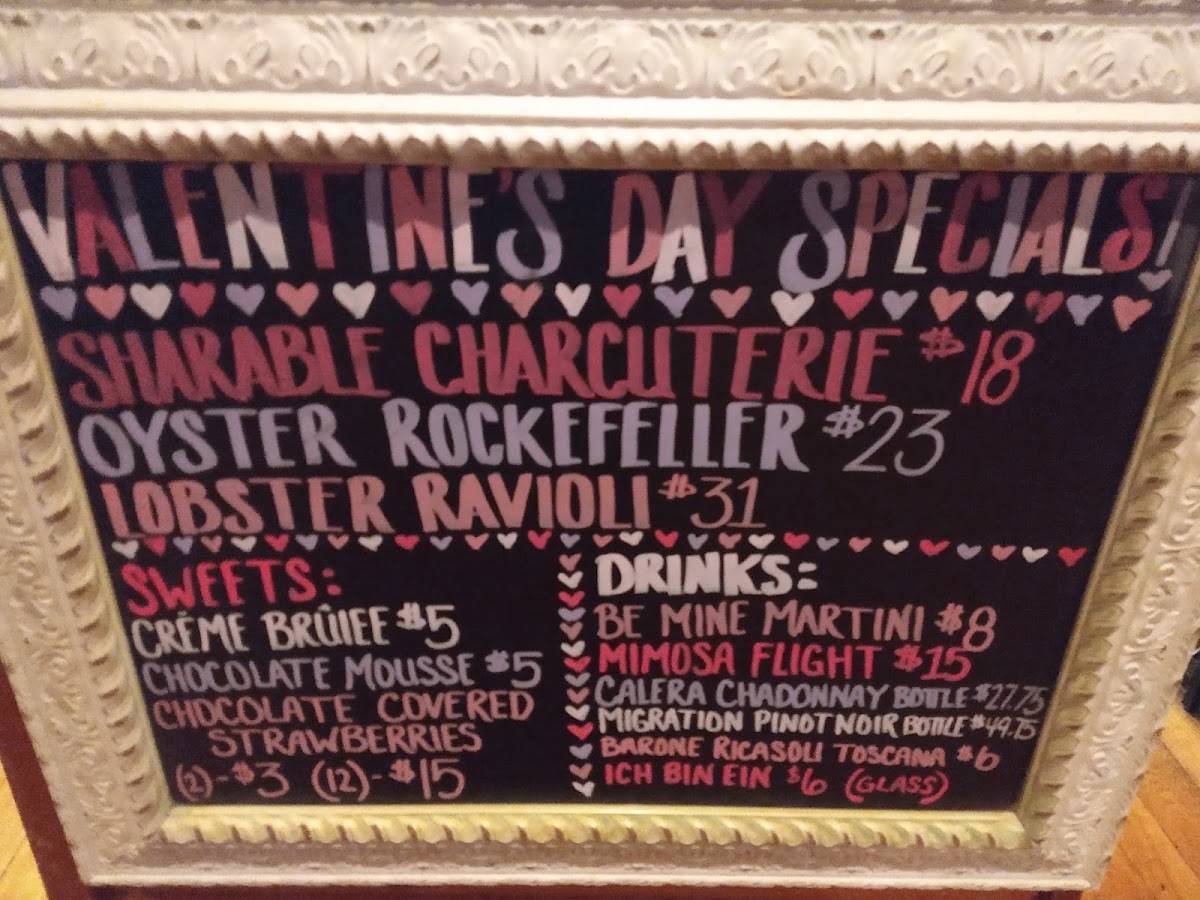 VALENTINE'S DAY SPECIALS!
SHARABLE CHARCUTERIE $18
OYSTER ROCKEFELLER $23
LOBSTER RAVIOLI $31
SWEETS:
CRÈME BRÛLEE $5
CHOCOLATE MOUSSE $5
CHOCOLATE COVERED
STRAWBERRIES
(2)-$3 (12)-$15
DRINKS:
BE MINE MARTINI $8
MIMOSA FLIGHT $15
CALERA CHADONNAY BOTTLE $27.75
MIGRATION PINOT NOIR BOTTLE $49.75
BARONE RICASOLI TOSCANA $6
ICH BIN EIN $6 (GLASS)